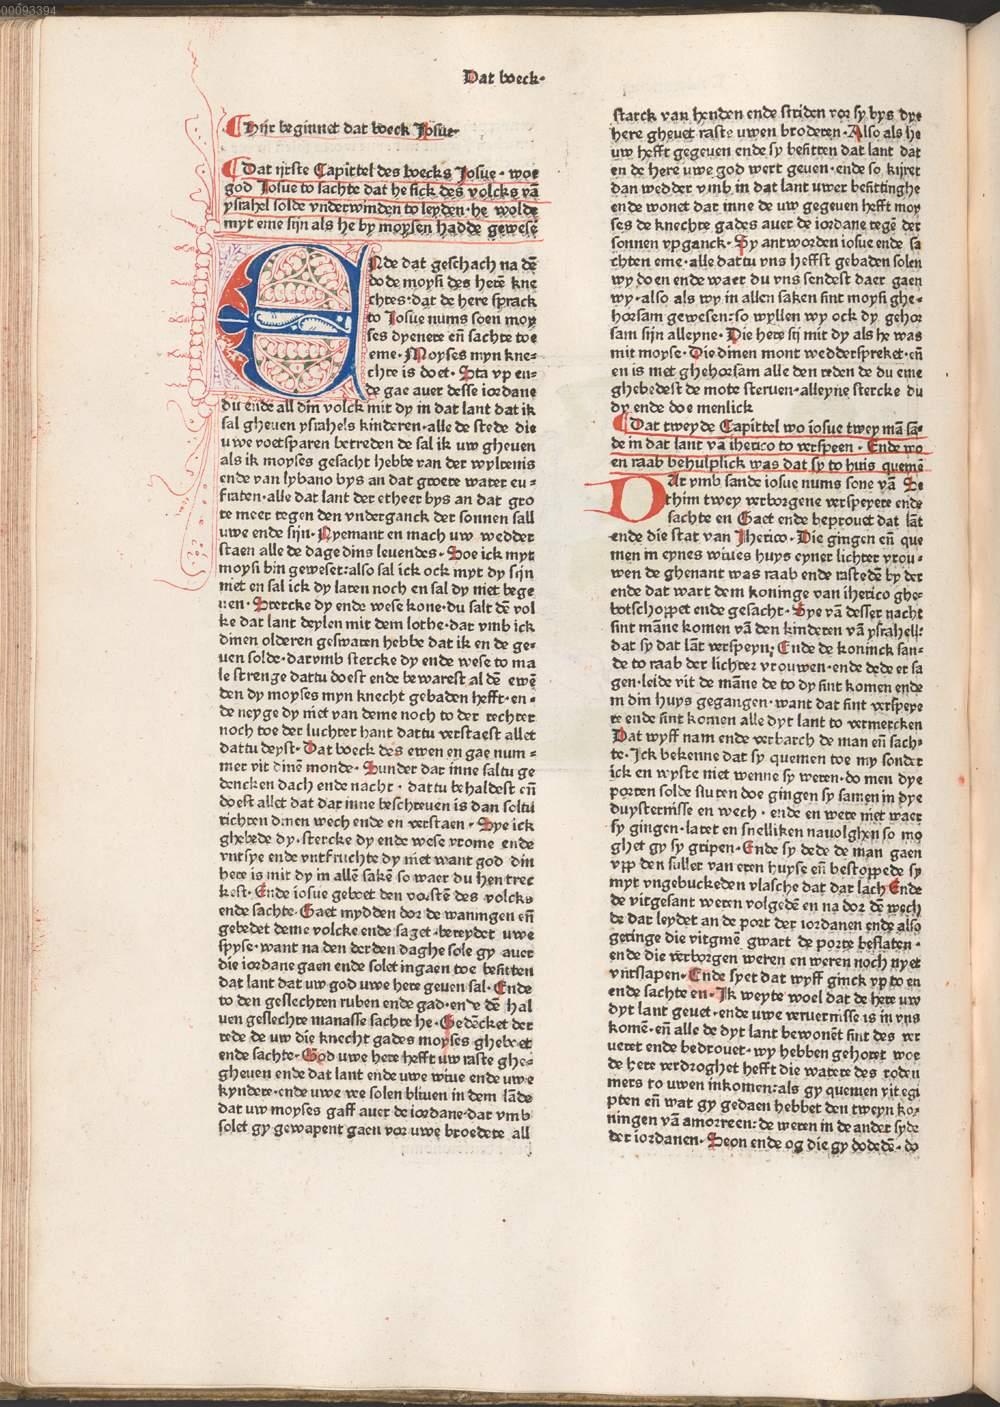 00093394
Dat boeck·
Hijr beginnet dat boeck Josue·
Dat ijrste Capittel des boecks Josue· woe
god Josue to sachte dat he sick des volcks vā
ysrahel solde vnderwinden to leyden· he wolde
myt eme sijn als he by moysen hadde gewesē
ENde dat geschach na dē
dode moysi des herē kne
chtes· dat de here sprack
to Josue nums soen moy
ses dyenere eñ sachte toe
eme· Moyses myn kne=
chte is doet· Sta vp en=
de gae auer desse iordane
du ende all din volck mit dy in dat lant dat ik
sal gheuen ysrahels kinderen· alle de stede die
uwe voetsparen betreden de sal ik uw gheuen
als ik moyses gesacht hebbe van der wyltenis
ende van lybano bys an dat groete water eu=
fraten· alle dat lant der etheer bys an dat gro
te meer tegen den vnderganck der sonnen sall
uwe ende sijn· Nyemant en mach uw wedder
staen alle de dage dins leuendes· Soe ick myt
moysi bin geweset: also sal ick ock myt dy sijn
niet en sal ick dy laten noch en sal dy niet bege
uen· Stercke dy ende wese kone· du salt dē vol
ke dat lant deylen mit dem lothe· dat vmb ick
dinen olderen geswaren hebbe dat ik en de ge=
uen solde· darvmb stercke dy ende wese to ma
le strenge dattu doest ende bewarest al dē ewē
den dy moyses myn knecht gebaden hefft· en=
de neyge dy niet van deme noch to der rechter
noch toe der luchter hant dattu verstaest allet
dattu deyst· Dat boeck des ewen en gae num=
mer vit dinē monde· Sunder dar inne saltu ge
dencken dach ende nacht· dattu behaldest eñ
doest allet dat dar inne beschreuen is dan soltu
richten dinen wech ende en verstaen· Sye ick
ghebede dy· stercke dy ende wese vrome ende
vntsye ende vntfruchte dy niet want god din
here is mit dy in allē sakē so waer du hen trec
kest· Ende iosue geboet den vorstē des volcks
ende sachte· Gaet mydden dor de waningen eñ
gebedet deme volcke ende saget· bereydet uwe
spyse· want na den derden daghe sole gy auer
die iordane gaen ende solet ingaen toe besitten
dat lant dat uw god uwe here geuen sal· Ende
to den geslechten ruben ende gad· ende dē hal
uen geslechte manasse sachte he· Gedēcket der
rede de uw die knecht gades moyses ghebeet
ende sachte· God uwe here hefft uw raste ghe=
gheuen ende dat lant ende uwe wiue ende uwe
kyndere· ende uwe vee solen bliuen in dem lāde
dat uw moyses gaff auer de iordane· dat vmb
solet gy gewapent gaen vor uwe broedere all
starck van henden ende striden vor sy bys dye
here gheuet raste uwen broderen· Also als he
uw hefft gegeuen ende sy besitten dat lant dat
en de here uwe god wert geuen· ende so kijret
dan wedder vmb in dat lant uwer besittinghe
ende wonet dat inne de uw gegeuen hefft moy
ses de knechte gades auer de iordane tegē der
sonnen vpganck· Sy antworden iosue ende sa
chten eme· alle dattu vns heffst gebaden solen
wy doen ende waer du vns sendest daer gaen
wy· also als wy in allen saken sint moysi ghe=
horsam gewesen: so wyllen wy ock dy gehor
sam sijn alleyne· Die here sij mit dy als he was
mit moyse· Die dinen mont wedderspreket· eñ
en is met ghehorsam alle den reden de du eme
ghebedest de mote steruen· alleyne stercke du
dy ende doe menlick
Dat tweyde Capittel wo iosue twey mā sā=
de in dat lant vā iherico to verspeen· Ende wo
en raab behulplick was dat sy to huis quemē
DAt vmb sande iosue nums sone vā Se
thim twey verborgene verspeyere ende
sachte en Gaet ende beprouet dat lāt
ende die stat van Jherico· Die gingen eñ que
men in eynes wiues huys eyner lichter vrou=
wen de ghenant was raab ende rastedē by der
ende dat wart dem koninge van iherico ghe=
botschoppet ende gesacht· Sye vā desser nacht
sint māne komen vā den kinderen vā ysrahell:
dat sy dat lāt verspeyn; Ende de koninck san=
de to raab der lichter vrouwen· ende dede er sa
gen· leide vit de māne de to dy sint komen ende
in din huys gegangen· want dat sint verspeye
re ende sint komen alle dyt lant to vermercken
Dat wyff nam ende verbarch de man eñ sach=
te· Jck bekenne dat sy quemen toe my sonder
ick en wyste niet wenne sy weren· do men dye
porten solde sluten doe gingen sy samen in dye
duysternisse en wech· ende en wete niet waer
sy gingen· latet en snelliken nauolghen so mo
ghet gy sy gripen· Ende sy dede de man gaen
vpp den suller van eren huyse eñ bestoppede sy
myt vngebuckeden vlasche dat dar lach Ende
de vitgesant weren volgedē en na dor dē wech
de dat leydet an de port der iordanen ende also
geringe die vitgmē gwart de porte beslaten·
ende die verborgen weren en weren noch nyet
vntslapen· Ende syet dat wyff ginck vp to en
ende sachte en· Jk weyte woel dat de here uw
dyt lant geuet· ende uwe veruernisse is in vns
komē· eñ alle de dyt lant bewonēt sint des ver
ueret ende bedrouet· wy hebben gehoret woe
de here verdroghet hefft die watere des roden
mers to uwen inkomen: als gy quemen vit egi
pten eñ wat gy gedaen hebbet den tweyn ko=
ningen vā amorreen: de weren in de ander syde
der iordanen· Seon ende og die gy dodedē· do